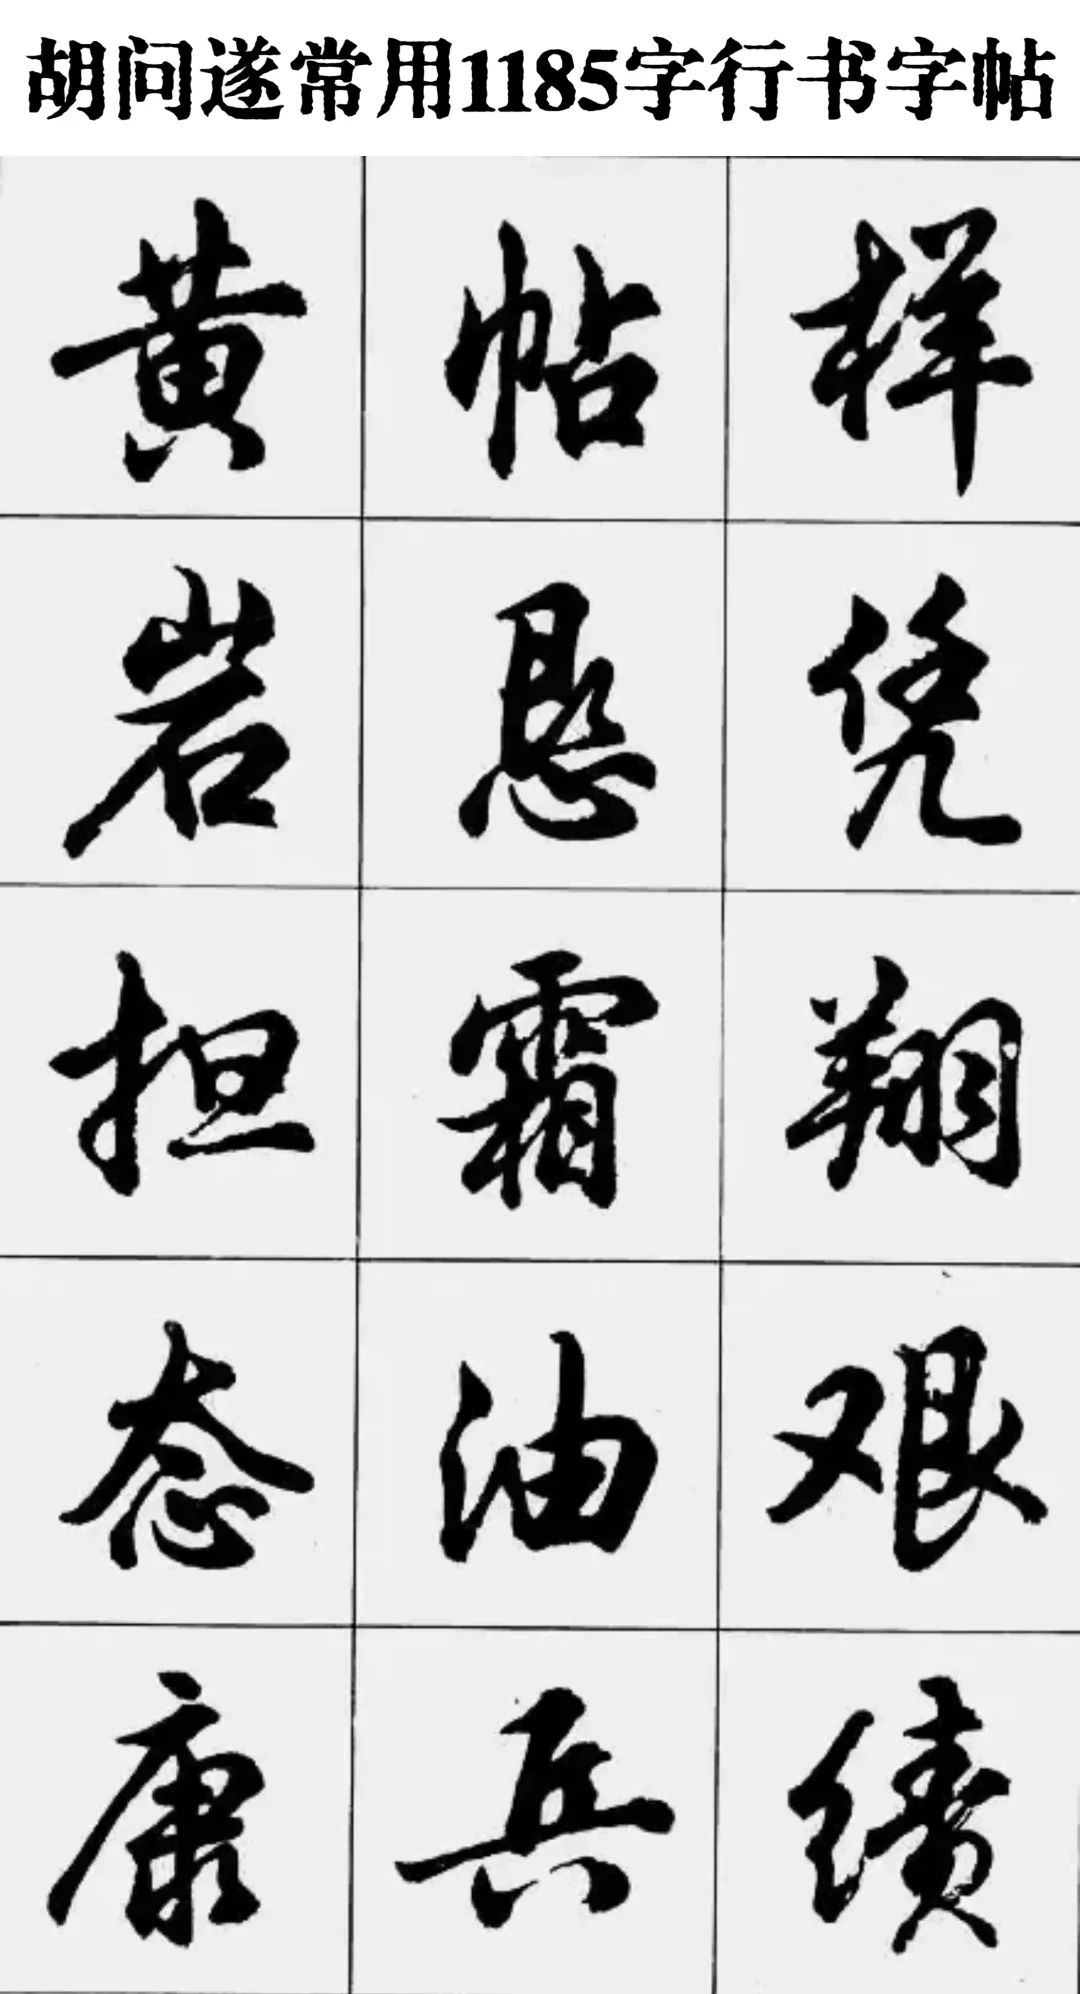 胡问遂常用1185字行书字帖
黄 帖 样
岩 悬 凭
担 霜 翔
态 油 艰
康 兵 续